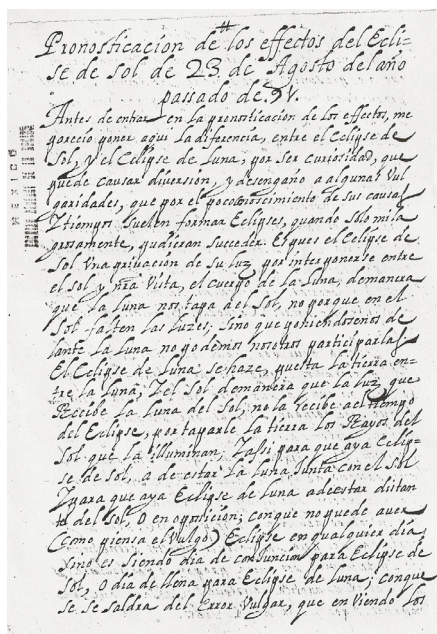 Pronosticacion de los effectos del Ecli-
se de sol de 23 de Agosto del año
passado de 91.
Antes de entrar en la pronosticacion de los effectos, me
parecio poner aqui la diferencia, entre el Eclipse de
Sol, y el Eclipse de Luna, por ser curiosidad, que
puede causar diversion, y desengaño a algunas vul
garidades, que por el poco conoscimiento de sus causas
y tiempos suelen formar Eclipses, quando solo mila
grosamente, pudieran succeder. Es pues el Eclipse de
Sol una privacion de su luz, por interponerse entre
el sol y nra vista, el cuerpo de la Luna, demanera
que la Luna nos tapa del Sol, no porque en el
Sol falten las luzes, sino que poniendosenos de
lante la Luna no podemos nosotros participarlas
El Eclipse de Luna se haze, puesta la tierra en-
tre la Luna, y el Sol demanera que la luz, que
Recibe la Luna del Sol, no la recibe al tiempo
del Eclipse, por taparle la tierra los Rayos del
Sol que la illuminan, y assi para que aya Eclip-
se de sol, a de estar la Luna junta con el Sol
y para que aya Eclipse de Luna a de estar distan
te del Sol, o en oposicion; conque no puede aver
(como piensa el Vulgo) Eclipse en qualquier dia,
sino es siendo dia de conjuncion para Eclipse de
Sol, o dia de llena para Eclipse de Luna; conque
se se saldra del Error Vulgar, que en viendo los
MEXICO